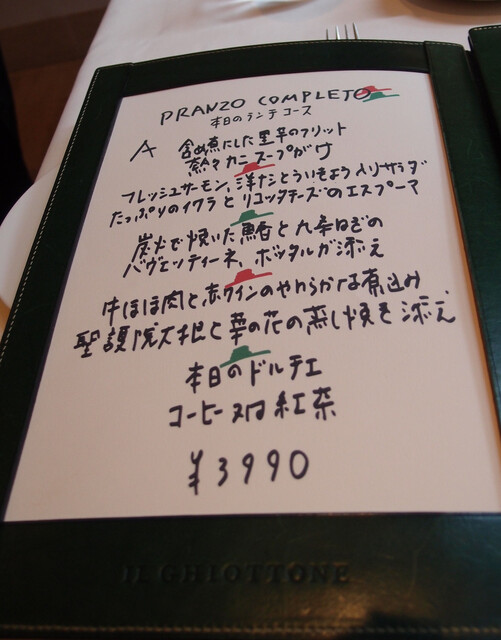 PRANZO COMPLETO
本日のランチコース
A 含め煮にした里芋のフリット
熱々カニスープがけ
フレッシュサーモン、洋ナシとういきょう入りサラダ
たっぷりのイクラとリコッタチーズのエスプーマ
炭火で焼いた鰆と九条ねぎの
バヴェッティーネ、ボッタルガ添え
牛ほほ肉と赤ワインのやわらかな煮込み
聖護院大根と菜の花の蒸し焼き添え
本日のドルチェ
コーヒー又は紅茶
¥3990
IL GHIOTTONE